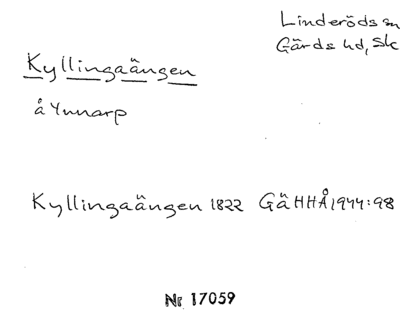 Linderöds sn
Gärds hd, Sk
Kyllingaängen
å Ynnarp
Kyllingaängen 1822 GäHHÅ1944:98
Nr 17059